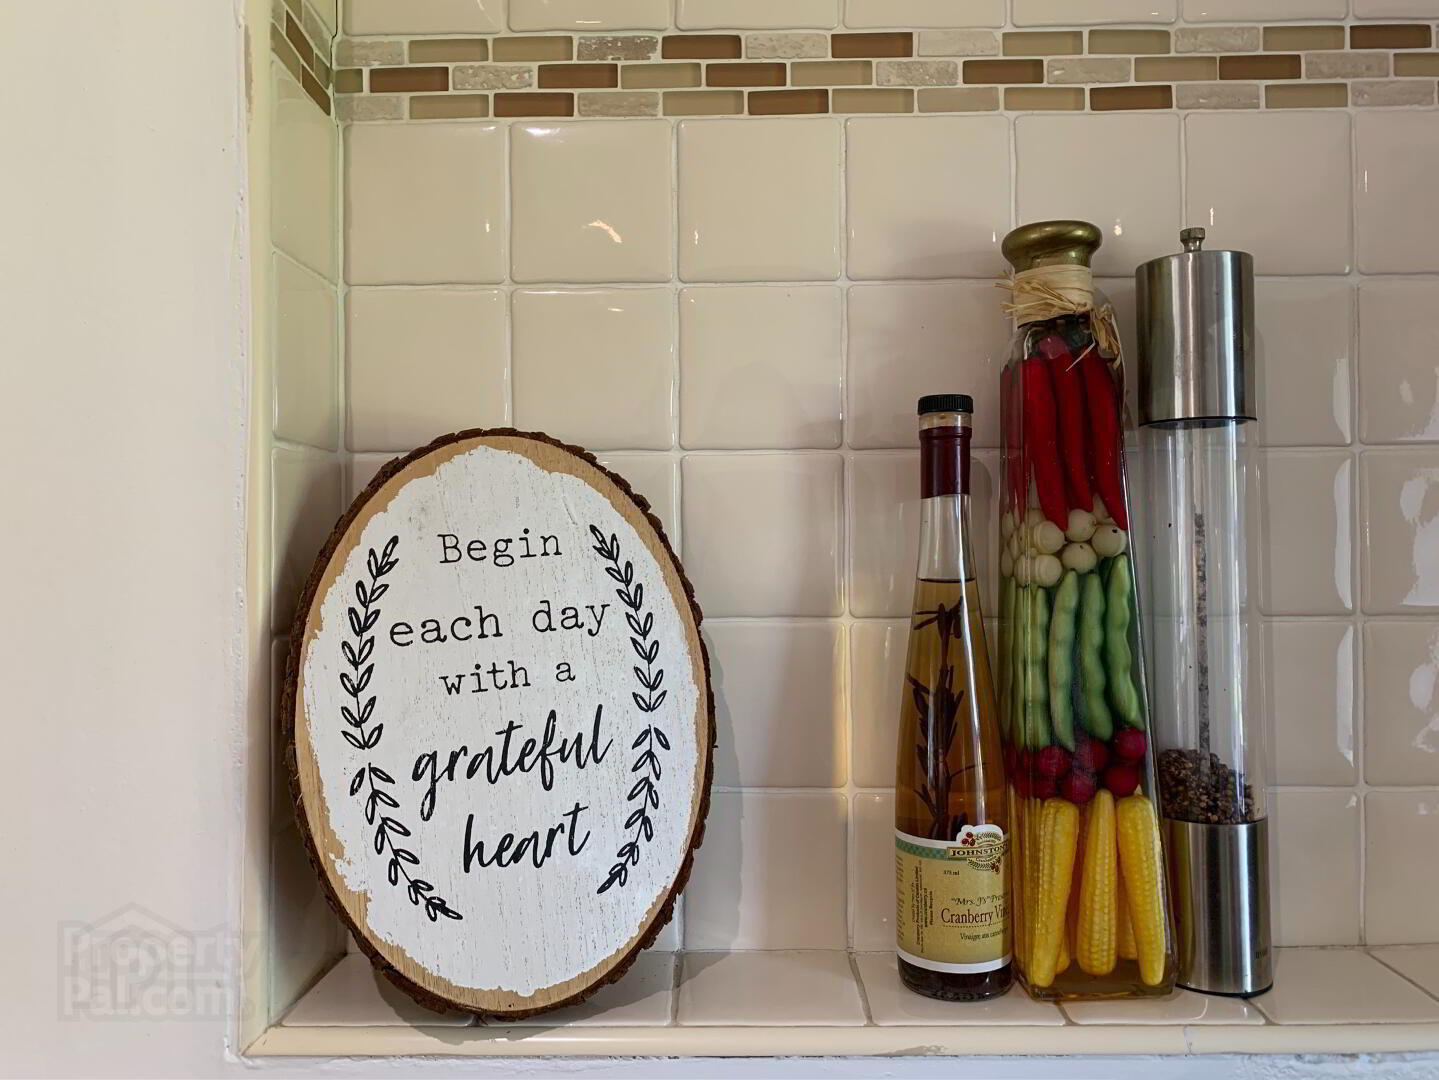 Begin
each day
with a
grateful
heart
JOHNSTON'
375 ml
"Mrs. J's"
Cranberry
Vinaigre aux
Property
Pal.com